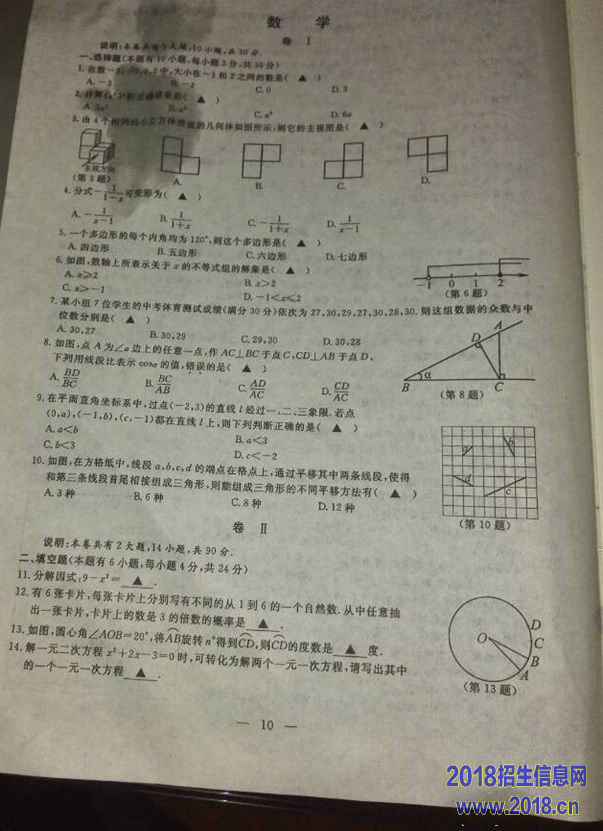 数 学
卷 Ⅰ
说明:本卷共有1大题,10小题,共30分.
一、选择题(本题有10小题,每小题3分,共30分)
1.在数-3,-2,0,3中,大小在-1和2之间的数是( ▲ )
A.-3 B.-2 C.0 D.3
2.计算 结果是( ▲ )
C.a⁴ D.6a
3.由4个相同的小立方体搭成的几何体如图所示,则它的主视图是( ▲ )
主视方向
(第3题) A. B. C. D.
4.分式-1/(1-x)可变形为( ▲ )
A.-1/(x-1) B.1/(1+x) C.-1/(1+x) D.1/(x-1)
5.一个多边形的每个内角均为120°,则这个多边形是( ▲ )
A.四边形 B.五边形 C.六边形 D.七边形
6.如图,数轴上所表示关于x的不等式组的解集是( ▲ )
A.x≥2 B.x>2
C.x>-1 D.-1<x≤2
-1 0 1 2
(第6题)
7.某小组7位学生的中考体育测试成绩(满分30分)依次为27,30,29,27,30,28,30.则这组数据的众数与中
位数分别是( ▲ )
A.30,27 B.30,29 C.29,30 D.30,28
8.如图,点A为∠α边上的任意一点,作AC⊥BC于点C,CD⊥AB于点D,
下列用线段比表示cosα的值,错误的是( ▲ )
A.BD/BC B.BC/AB C.AD/AC D.CD/AC
A D B α C
(第8题)
9.在平面直角坐标系中,过点(-2,3)的直线l经过一、二、三象限.若点
(0,a),(-1,b),(c,-1)都在直线l上,则下列判断正确的是( ▲ )
A.a<b B.a<3
C.b<3 D.c<-2
10.如图,在方格纸中,线段a,b,c,d的端点在格点上,通过平移其中两条线段,使得
和第三条线段首尾相接组成三角形,则能组成三角形的不同平移方法有( ▲ )
A.3种 B.6种 C.8种 D.12种
a b d c
(第10题)
卷 Ⅱ
说明:本卷共有2大题,14小题,共90分.
二、填空题(本题有6小题,每小题4分,共24分)
11.分解因式:9-x²= ▲ .
12.有6张卡片,每张卡片上分别写有不同的从1到6的一个自然数.从中任意抽
出一张卡片,卡片上的数是3的倍数的概率是 ▲ .
13.如图,圆心角∠AOB=20°,将AB旋转n°得到CD,则CD的度数是 ▲ 度.
14.解一元二次方程x²+2x-3=0时,可转化为解两个一元一次方程,请写出其中
的一个一元一次方程 ▲ .
O D C B A
(第13题)
— 10 —
2018招生信息网
www.2018.cn